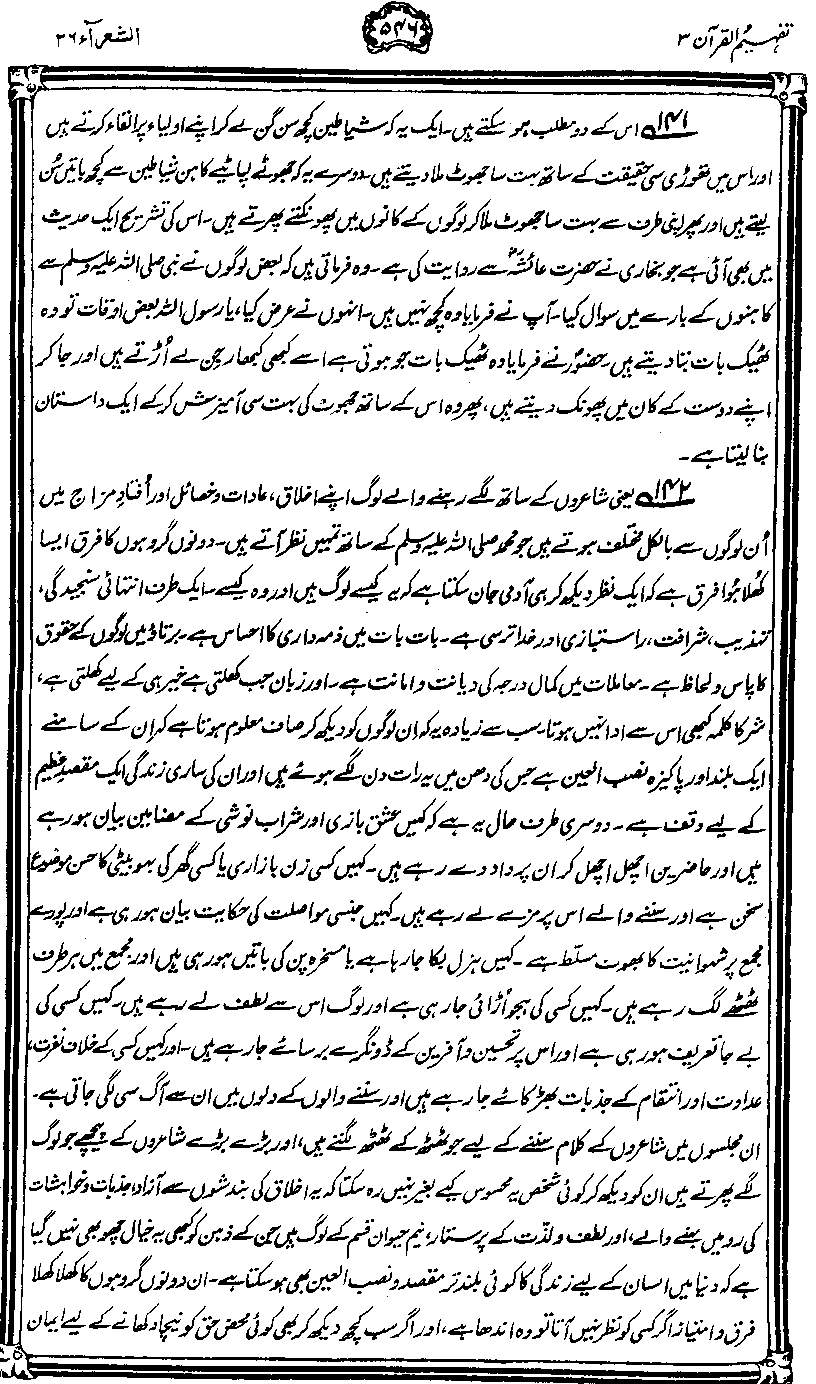 تفہیم القرآن ۳
۵۴۶
الشعرآء ۲۶
۱۴۱ اس کے دو مطلب ہو سکتے ہیں۔ ایک یہ کہ شیاطین کچھ سن گن لے کر اپنے اولیاء پر القاء کرتے ہیں
اور اس میں تھوڑی سی حقیقت کے ساتھ بہت سا جھوٹ ملا دیتے ہیں۔ دوسرے یہ کہ جھوٹے لپاٹیے کاہن شیاطین سے کچھ باتیں سُن
لیتے ہیں اور پھر اپنی طرف سے بہت سا جھوٹ ملا کر لوگوں کے کانوں میں پھونکتے پھرتے ہیں۔ اس کی تشریح ایک حدیث
میں بھی آئی ہے جو بخاری نے حضرت عائشہؓ سے روایت کی ہے۔ وہ فرماتی ہیں کہ بعض لوگوں نے نبی صلی اللہ علیہ وسلم سے
کاہنوں کے بارے میں سوال کیا۔ آپ نے فرمایا وہ کچھ نہیں ہیں۔ انہوں نے عرض کیا، یا رسول اللہ بعض اوقات تو وہ
ٹھیک بات بتا دیتے ہیں۔ حضورؐ نے فرمایا وہ ٹھیک بات جو ہوتی ہے اسے کبھی کبھار جِن لے اُڑتے ہیں اور جا کر
اپنے دوست کے کان میں پھونک دیتے ہیں، پھر وہ اس کے ساتھ جھوٹ کی بہت سی آمیزش کر کے ایک داستان
بنا لیتا ہے۔
۱۴۲ یعنی شاعروں کے ساتھ لگے رہنے والے لوگ اپنے اخلاق، عادات و خصائل اور اُفتادِ مزاج میں
اُن لوگوں سے بالکل مختلف ہوتے ہیں جو محمد صلی اللہ علیہ وسلم کے ساتھ تمہیں نظر آتے ہیں۔ دونوں گروہوں کا فرق ایسا
کھلا ہوا فرق ہے کہ ایک نظر دیکھ کر ہی آدمی جان سکتا ہے کہ یہ کیسے لوگ ہیں اور وہ کیسے۔ ایک طرف انتہائی سنجیدگی،
تہذیب، شرافت، راستبازی اور خدا ترسی ہے۔ بات بات میں ذمہ داری کا احساس ہے۔ برتاؤ میں لوگوں کے حقوق
کا پاس و لحاظ ہے۔ معاملات میں کمال درجہ کی دیانت و امانت ہے۔ اور زبان جب کھلتی ہے خیر ہی کے لیے کھلتی ہے،
شر کا کلمہ کبھی اس سے ادا نہیں ہوتا۔ سب سے زیادہ یہ کہ ان لوگوں کو دیکھ کر صاف معلوم ہوتا ہے کہ ان کے سامنے
ایک بلند اور پاکیزہ نصب العین ہے جس کی دھن میں یہ رات دن لگے ہوئے ہیں اور ان کی ساری زندگی ایک مقصدِ عظیم
کے لیے وقف ہے۔ دوسری طرف حال یہ ہے کہ کہیں عشق بازی اور شراب نوشی کے مضامین بیان ہو رہے
ہیں اور حاضرین اچھل اچھل کر ان پر داد دے رہے ہیں۔ کہیں کسی زن بازاری یا کسی گھر کی بہو بیٹی کا حسن موضوع
سخن ہے اور سننے والے اس پر مزے لے رہے ہیں۔ کہیں جنسی مواصلت کی حکایت بیان ہو رہی ہے اور پورے
مجمع پر شہوانیت کا بھوت مسلط ہے۔ کہیں ہزل بکا جا رہا ہے یا مسخرہ پن کی باتیں ہو رہی ہیں اور مجمع میں ہر طرف
ٹھٹھے لگ رہے ہیں۔ کہیں کسی کی ہجو اُڑائی جا رہی ہے اور لوگ اس سے لطف لے رہے ہیں۔ کہیں کسی کی
بے جا تعریف ہو رہی ہے اور اس پر تحسین و آفرین کے ڈونگرے برسائے جا رہے ہیں۔ اور کہیں کسی کے خلاف نفرت،
عداوت اور انتقام کے جذبات بھڑکائے جا رہے ہیں اور سننے والوں کے دلوں میں ان سے آگ سی لگی جاتی ہے۔
ان مجلسوں میں شاعروں کے کلام سننے کے لیے جو ٹھٹھ کے ٹھٹھ لگتے ہیں، اور بڑے بڑے شاعروں کے پیچھے جو لوگ
لگے پھرتے ہیں ان کو دیکھ کر کوئی شخص یہ محسوس کیے بغیر نہیں رہ سکتا کہ یہ اخلاق کی بندشوں سے آزاد، جذبات و خواہشات
کی رو میں بہنے والے، اور لطف و لذت کے پرستار، نیم حیوان قسم کے لوگ ہیں جن کے ذہن کو کبھی یہ خیال چھو بھی نہیں گیا
ہے کہ دنیا میں انسان کے لیے زندگی کا کوئی بلند تر مقصد و نصب العین بھی ہو سکتا ہے۔ ان دونوں گروہوں کا کھلا کھلا
فرق و امتیاز اگر کسی کو نظر نہیں آتا تو وہ اندھا ہے، اور اگر سب کچھ دیکھ کر بھی کوئی محض حق کو نیچا دکھانے کے لیے ایمان